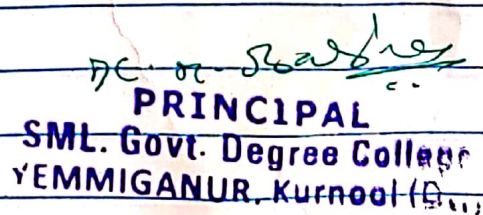 PRINC1PAL
SML. Govt. Degree College
YEMMIGANUR, Kurnool (D...)